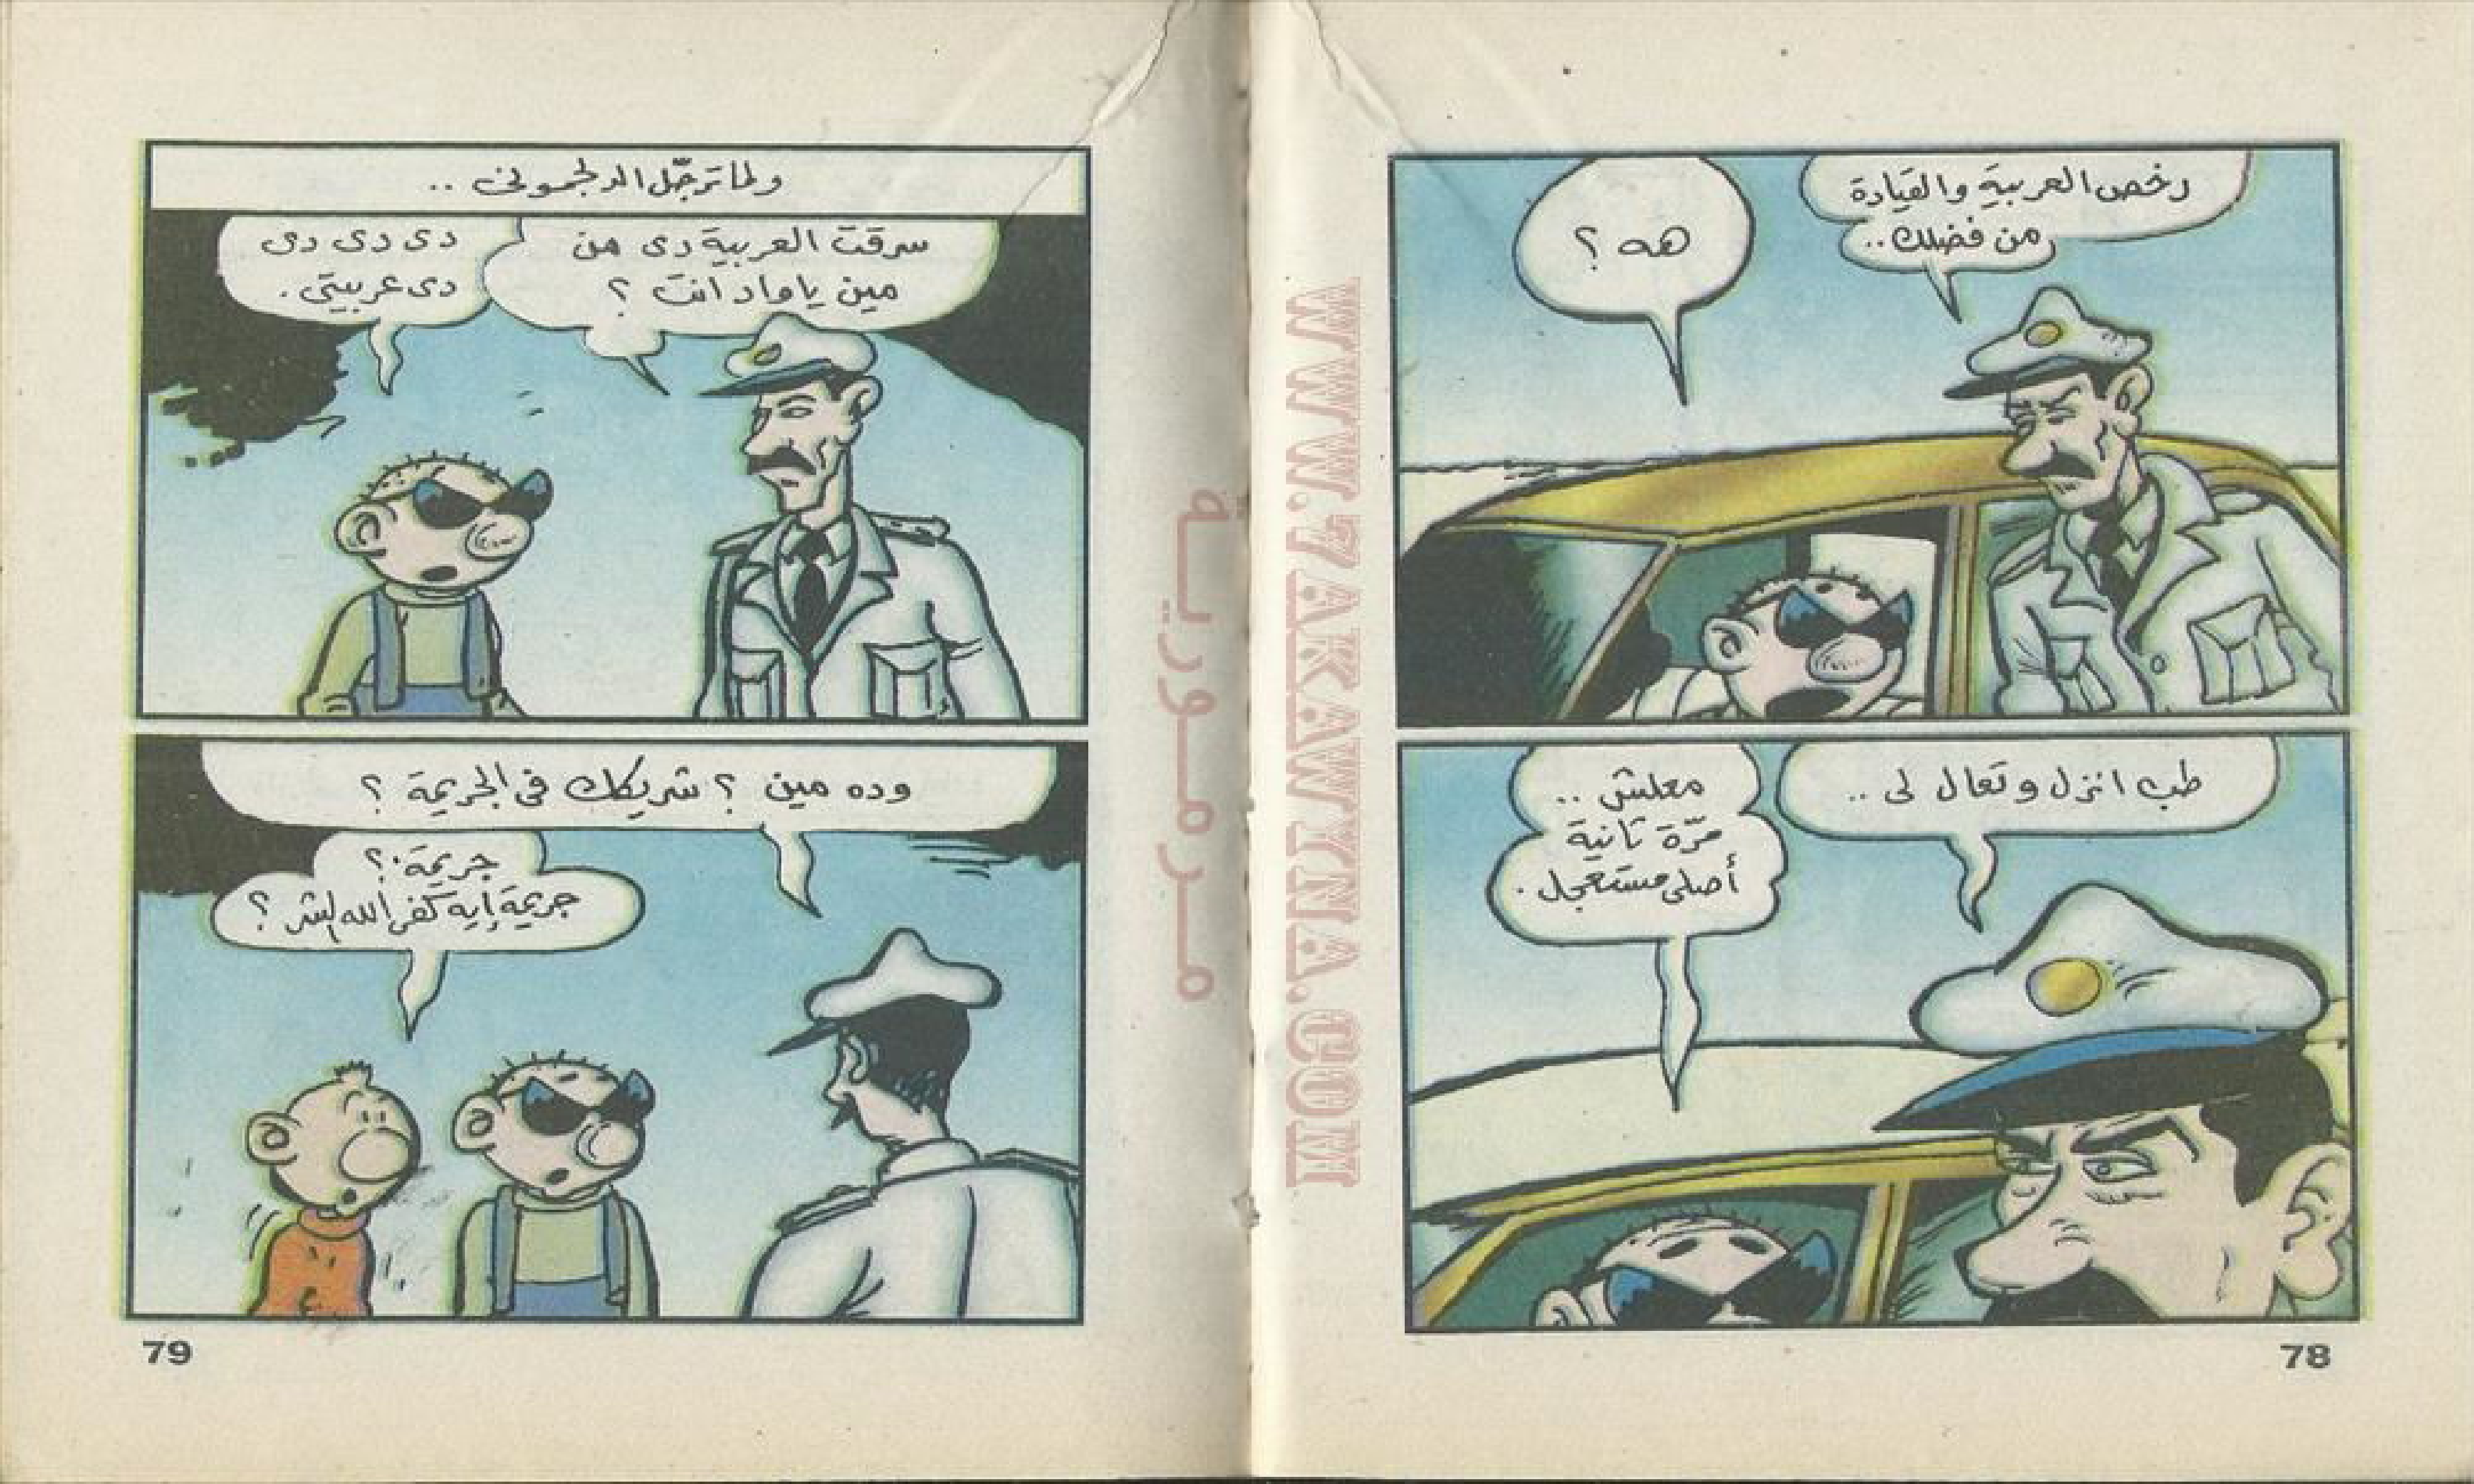 رخص العربية والقيادة
من فضلك..
هه ؟
طب انزل وتعال لى ..
معلش ..
مرّة تانية
أصلى مستعجل .
78
ولما ترجّل الدلجمونى ..
سرقت العربية دى من
مين ياواد انت ؟
دى دى دى
دى عربيتى .
وده مين ؟ شريكك فى الجريمة ؟
جريمة ؟
جريمة إيه كفى الله الشر ؟
79
WWW.7AKAWINA.COM
مرمورية